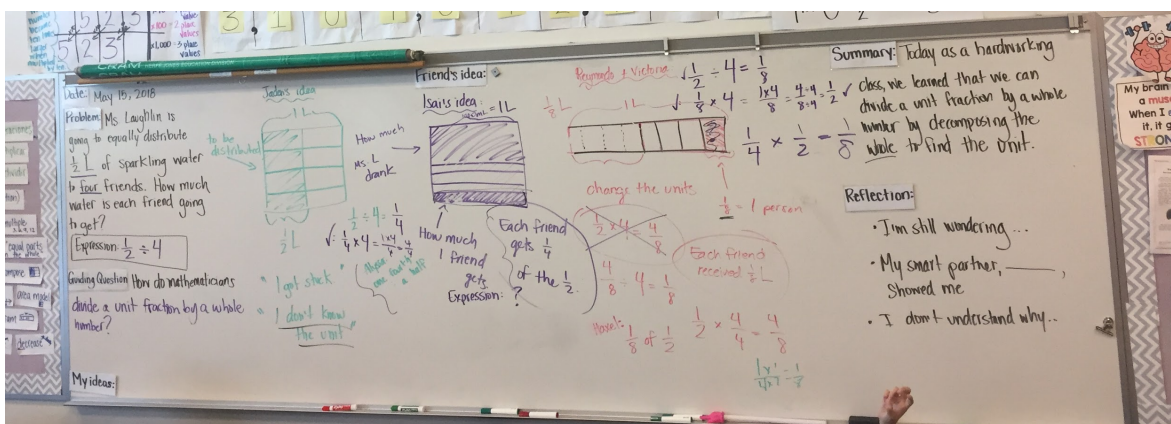 Date: May 15, 2018
Problem: Ms Laughlin is
going to equally distribute
1/2 L of sparkling water
to four friends. How much
water is each friend going
to get?
Expression: 1/2 ÷ 4
Guiding Question How do mathematicians
divide a unit fraction by a whole
number?
My ideas:
Jada's idea
1L
to be
distributed
1/2 L
1/2 ÷ 4 = 1/4
√ 1/4 × 4 = 1×4/4 = 4/4
one fourth of
a half
"I got stuck"
"I don't know
the unit"
Friend's idea:
Isai's idea:
= 1L
How much
Ms. L
drank
How much
1 friend
gets
Expression: ?
Each friend
gets 1/4
of the 1/2.
Reynaldo + Victoria
1/8 L
1L
√ 1/2 ÷ 4 = 1/8
√ 1/8 × 4 = 1×4/8 = 4÷4/8÷4 = 1/2 √
1/4 × 1/2 = 1/8
change the units
1/8 = 1 person
1/2 × 4 = 4/8
4/8 ÷ 4 = 1/8
Each friend
received 1/2 L
1/8 of 1/2
1/2 × 4/4 = 4/8
Summary: Today as a hardworking
class, we learned that we can
divide a unit fraction by a whole
number by decomposing the
whole to find the unit.
Reflection:
• I'm still wondering...
• My smart partner, ____,
showed me
• I don't understand why...
My brain
a mus
When I
it, it g
STRON
5 2 3
×1,000 = 3 place
values
equal parts
area model
decrease